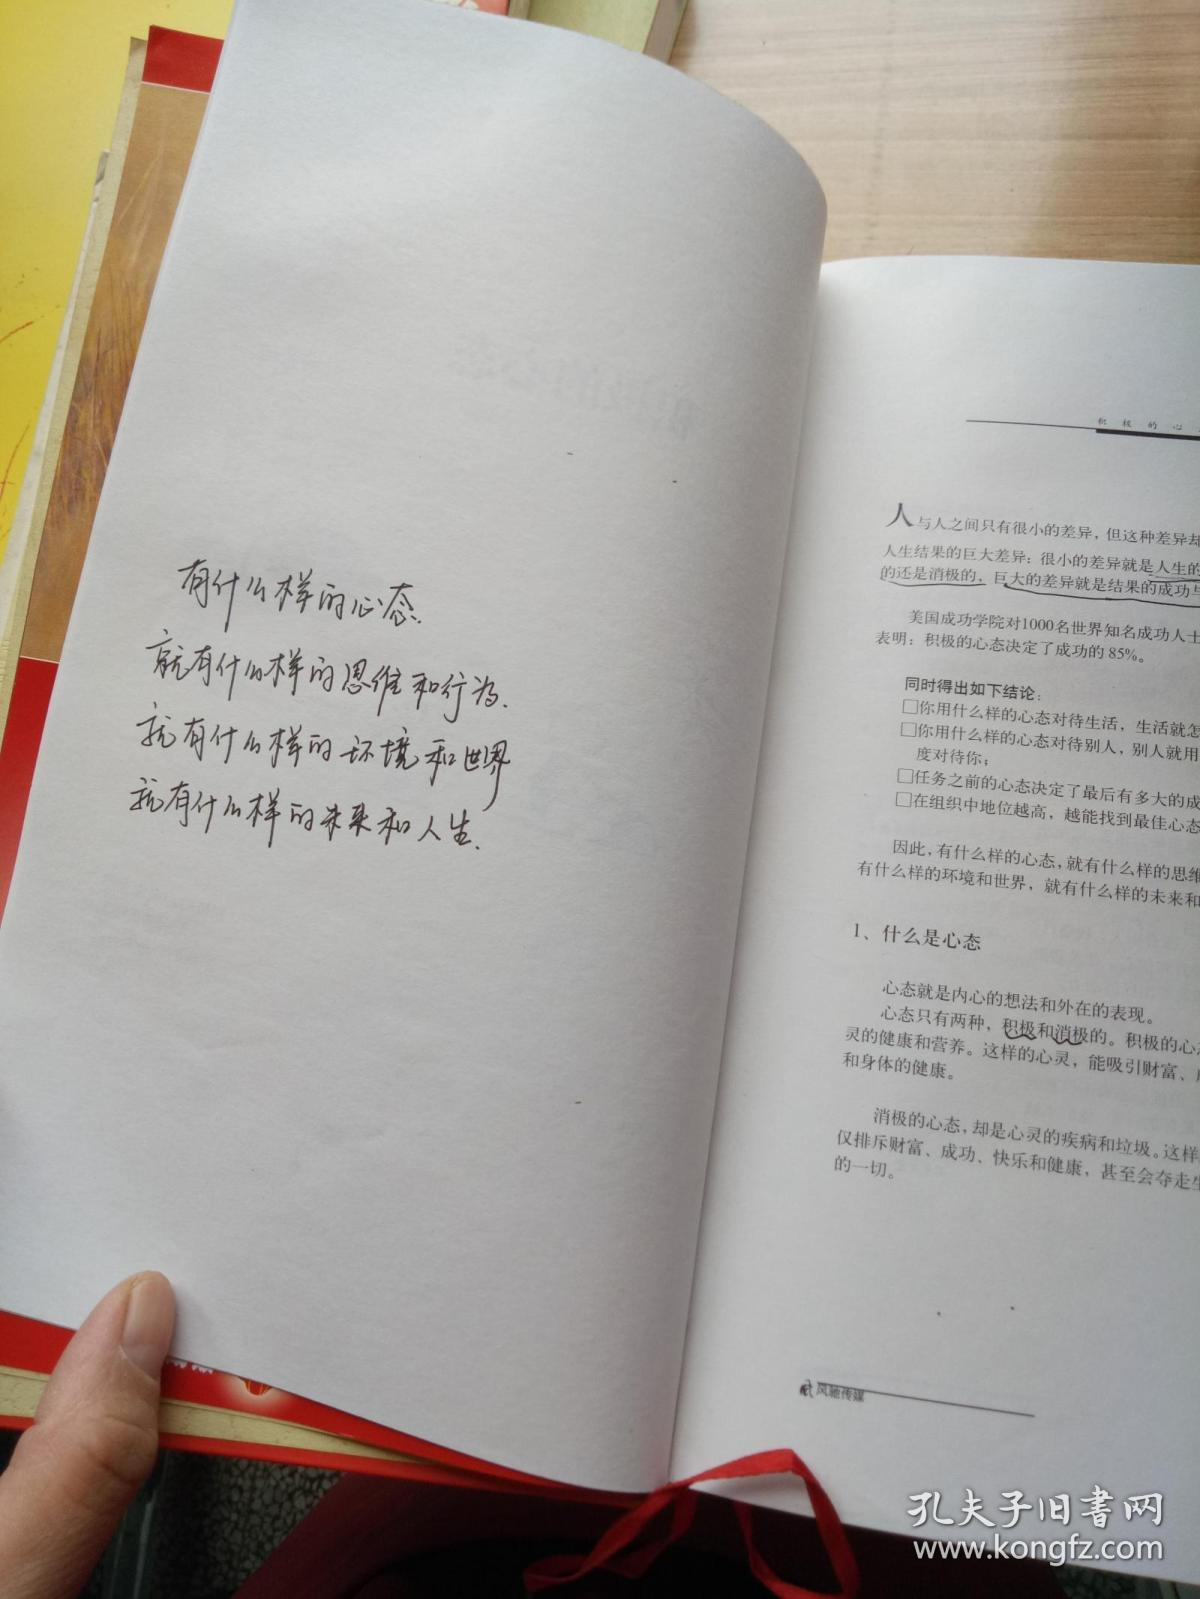 有什么样的心态.
就有什么样的思维和行为.
就有什么样的环境和世界
就有什么样的未来和人生.
积极的心
人与人之间只有很小的差异，但这种差异却
人生结果的巨大差异：很小的差异就是人生的
的还是消极的，巨大的差异就是结果的成功与
美国成功学院对1000名世界知名成功人士
表明：积极的心态决定了成功的85%。
同时得出如下结论：
□你用什么样的心态对待生活，生活就怎
□你用什么样的心态对待别人，别人就用
度对待你；
□任务之前的心态决定了最后有多大的成
□在组织中地位越高，越能找到最佳心态
因此，有什么样的心态，就有什么样的思维
有什么样的环境和世界，就有什么样的未来和
1、什么是心态
心态就是内心的想法和外在的表现。
心态只有两种，积极和消极的。积极的心态
灵的健康和营养。这样的心灵，能吸引财富、
和身体的健康。
消极的心态，却是心灵的疾病和垃圾。这样
仅排斥财富、成功、快乐和健康，甚至会夺走生
的一切。
风驰传媒
孔夫子旧书网
www.kongfz.com